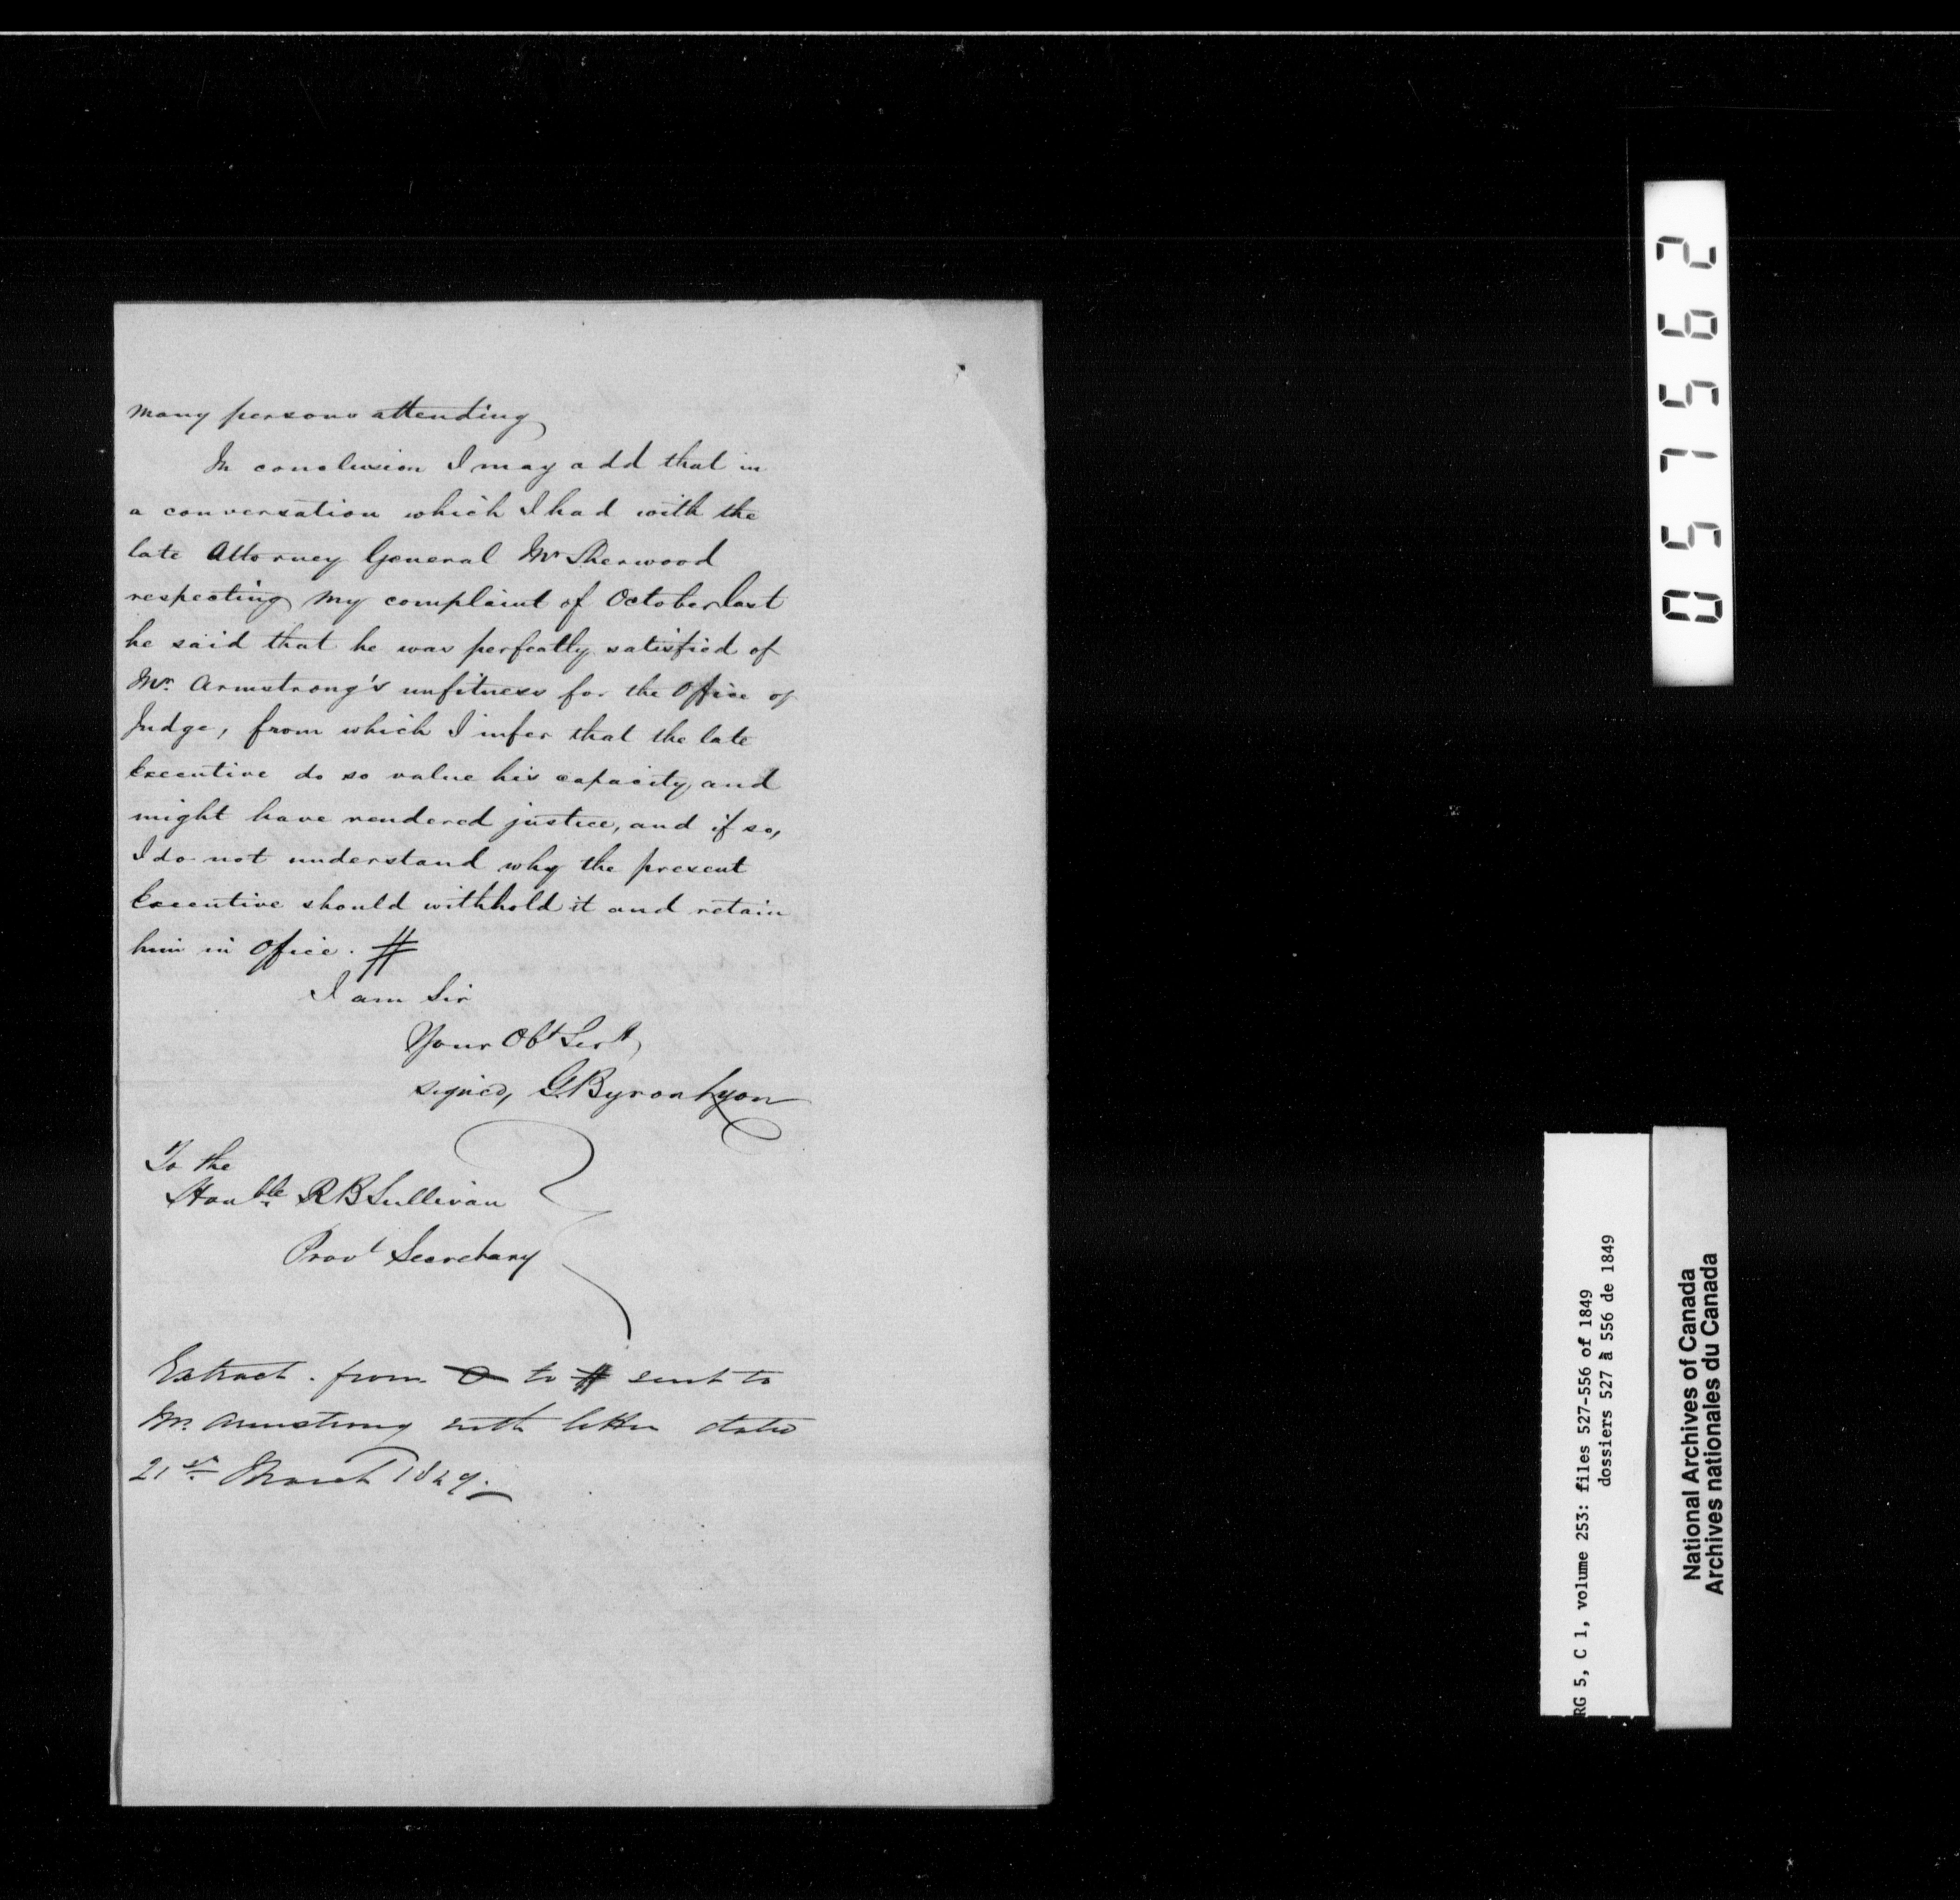 many persons attending
In conclusion I may add that in
a conversation which I had with the
late Attorney General Mr Sherwood
respecting my complaint of October last
he said that he was perfectly satisfied of
Mr. Armstrong's unfitness for the Office of
Judge, from which I infer that the late
Executive do so value his capacity, and
might have rendered justice, and if so,
I do not understand why the present
Executive should withhold it and retain
him in Office. #
I am Sir
Your Obt Servt,
signed, G. Byron Lyon
To the
Honble. R B Sullivan
Provl Secretary
Extract. from to # sent to
Mr. Armstrong with letter dated
21st. March 1849.
0515962
RG 5, C 1, volume 253: files 527-556 of 1849
dossiers 527 à 556 de 1849
National Archives of Canada
Archives nationales du Canada